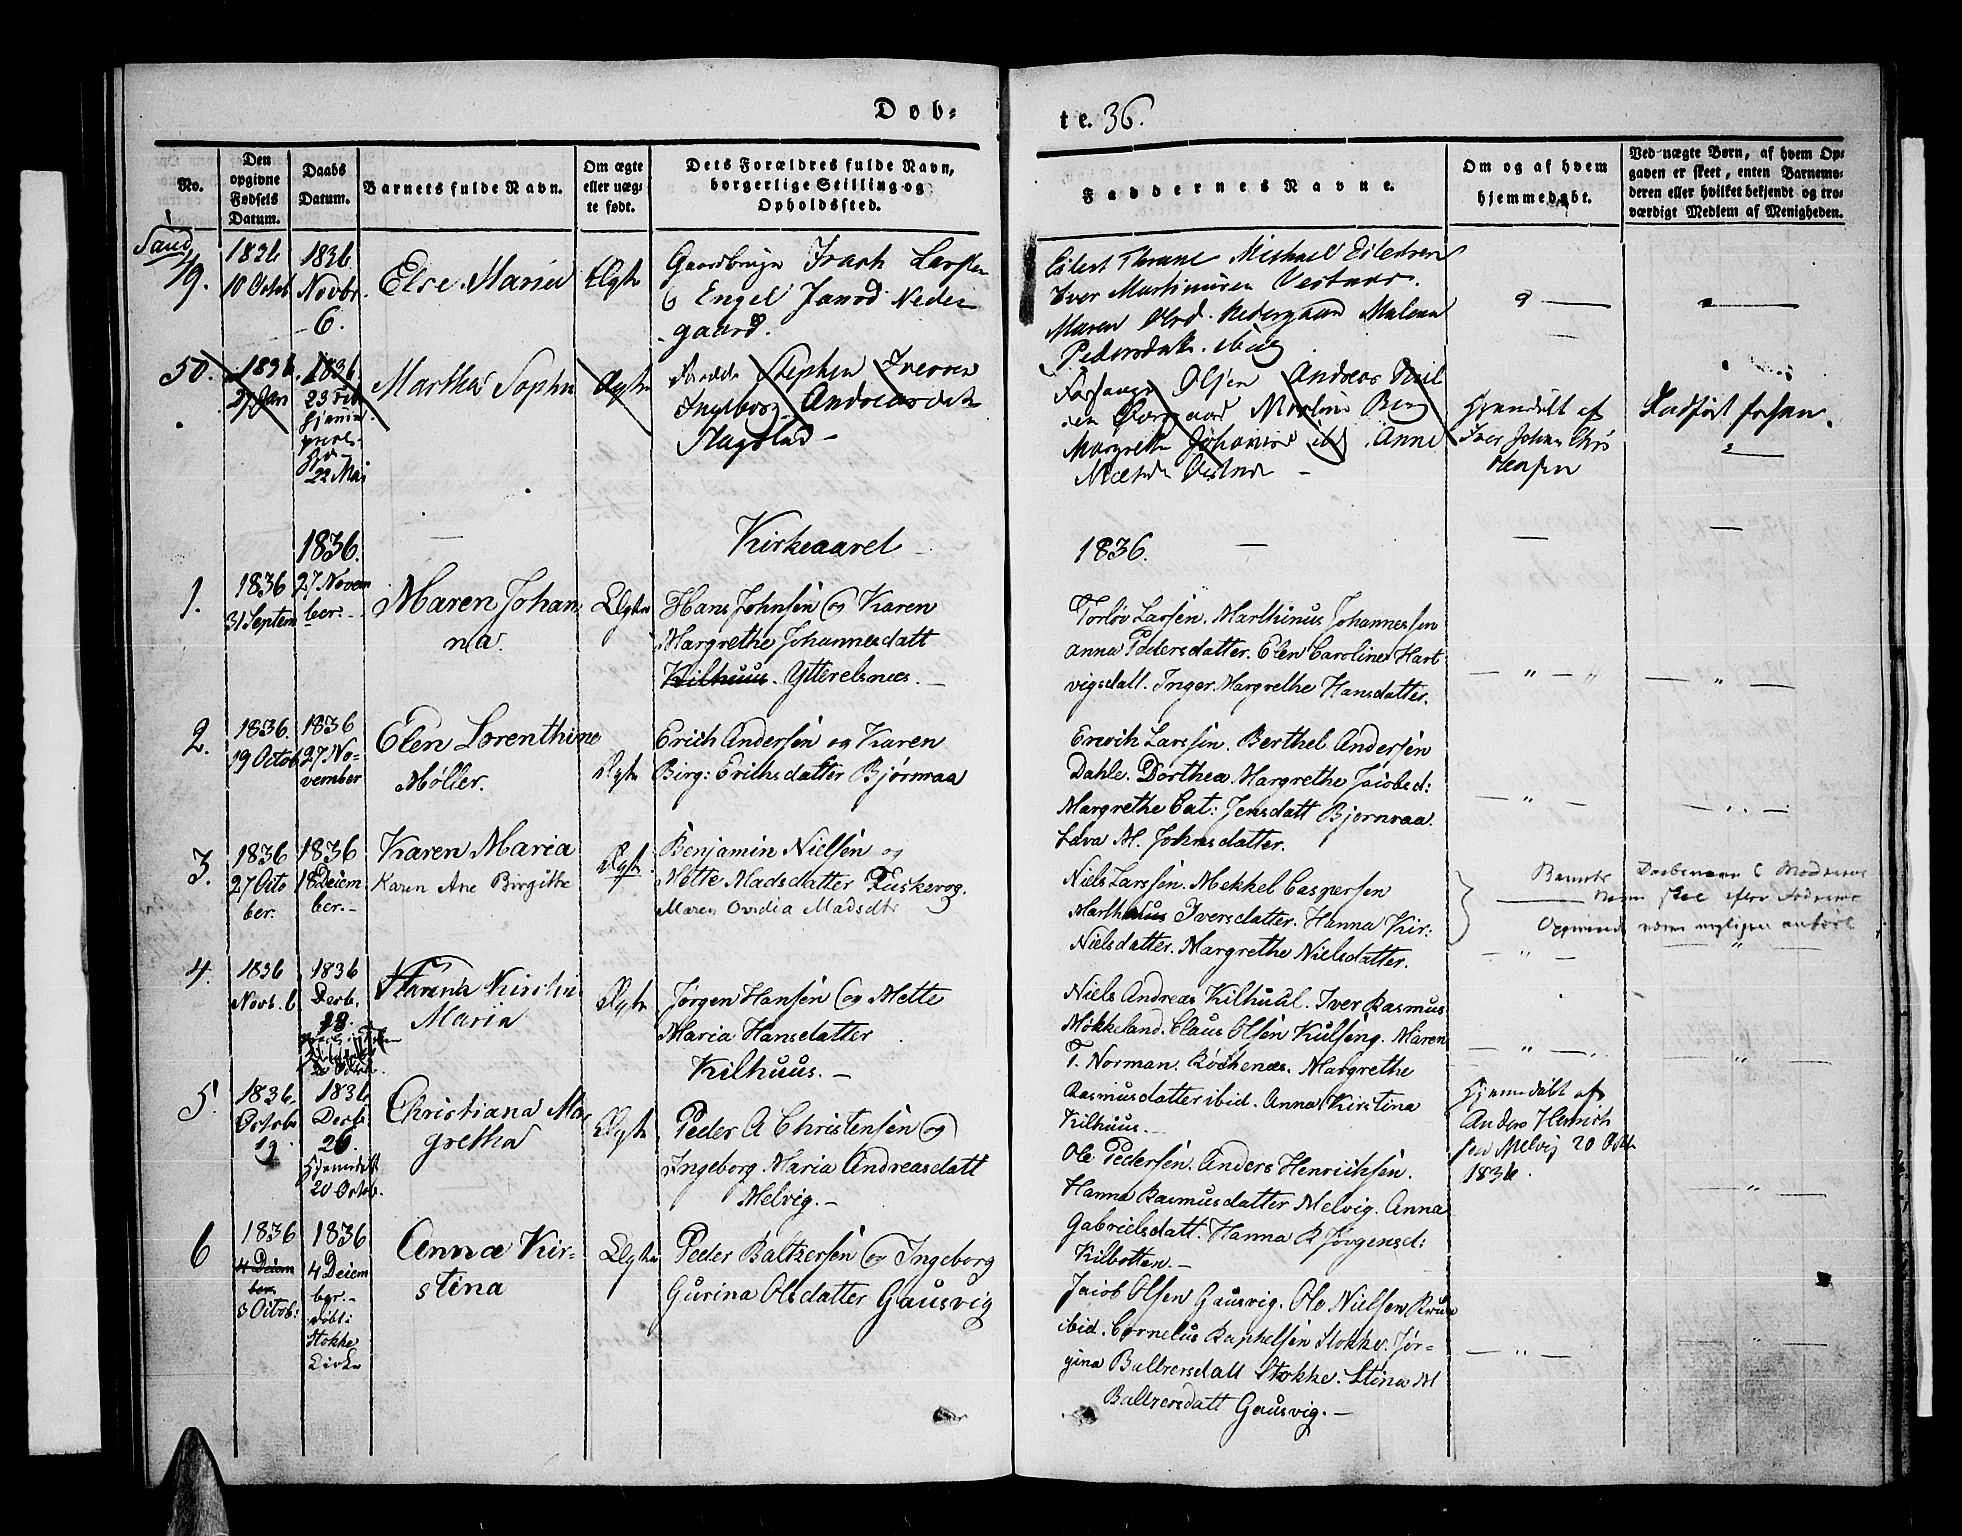 Døb-
te. 36.
No.
Den opgivne Fødsels Datum.
Daabs Datum.
Barnets fulde Navn.
Om ægte eller uæg-
te født.
Dets Forældres fulde Navn,
borgerlige Stilling og
Opholdssted.
Faddernes Navne.
Om og af hvem
hjemmedøbt.
Ved uægte Børn, af hvem Op-
gaven er skeet, enten Barnemo-
deren eller hvilket bekjendt og tro-
værdigt Medlem af Menigheden.
Sand
49.
1836
10 Octob
1836
Novbr.
6.
Else Maria
Ægte
Gaardbruger Isach Larsen
& Engel Jansd Neder
gaard.
Eilert Thrane Michael Eilertsen
Iver Martinusen Vestnæs.
Maren Olsd. Nedergaard Malena
Pedersdatr. ibid
50.
1836.
1836.
23 Feb
22 Mai
Martha Sophi
Ægte
Stephen Iversen
Ingeborg Andreasdatr
Flagstad -
Olsen Andreas
Margrethe Johannesd ibd. Anne
Hjemdøbt af
Iver Johan Chri
stensen
1836.
Kirkeaaret
1836.
1.
1836
31 Septem
27 Novem
ber.
Maren Johan
na.
Ægte
Hans Johnsen og Karen
Margrethe Johannesdatt
Kilhuus. Ytterelsnæs. -
Torløv Larsen. Marthinus Johannessen
anna Pedersdatter. Elen Caroline Hart
vigsdatt. Inger Margrethe Hansdatter.
2.
1836.
19 Octob
1836
27 No-
vember
Elen Lorenthine
Møller.
Ægte
Erich Andersen og Karen
Birg: Erichsdatter Bjørnraa
Enevih Larssen. Berthel Andersen
Dahle. Dorthea Margrethe Jacobsd:
Margrethe Cat: Jensdatt Bjørnraa.
Lava M. Johnsdatter.
3.
1836
27 Octo
ber.
1836
18 Decem
ber.-
Karen Maria
Karen Ane Birgitte
Ægte
Benjamin Nielsen og
Mette Madsdatter Fuskevog.
Maren Ovidia Madsdtr
Niels Larssen. Mekkel Caspersen
Marthinus Iversdatter. Hanna Kir:
Nielsdatter. Margrethe Nielsdatter.
Barnets Daabsnavn & Moderens
Navn skal efter Fødsels
4.
1836
Novb. 6
1836
Decb.
18.
Harina Kirstin
Maria
Ægte
Jørgen Hansen og Mette
Maria Hansdatter
Kilhuus. -
Niels Andreas Kilhuul. Iver Rasmus
Møkkeland. Claus Olsen Kulseng. Maren
T. Norman. Røkenæs. Margrethe
Rasmusdatter ibid. Anna Kirstina
Kilhuus.
5.
1836.
Octob
19.
1836
Decb.
26.
Hjemdøbt
20 Octob.
Christiana Mar
gretha
Ægte
Peder A Christensen og
Ingeborg Maria Andreasdatt
Melvig. -
Ole Pedersen. Anders Henrichsen.
Hanna Rasmusdatter Melvig. Anna
Gabrielsdatt. Hanna R Jørgensd:
Kilbotten. -
Hjemmedøbt af
Anders Henrich
sen Melvig 20 Octbr
1836.
6
1836
4 Decem
ber.
3 Octob:
1836
4 Decem
ber.-
døbt i
Stokke
Kirke
Anna Kir-
stina
Ægte
Peder Baltzersen og Ingeborg
Gurina Olsdatter Gausvig
Jacob Olsen Gausvig. Ole Nielsen
ibid. Cornelus Raphelsen Stokke. Jør-
gina Baltzersdatt Stokke. Stina M
Baltzersdatt Gausvig. -